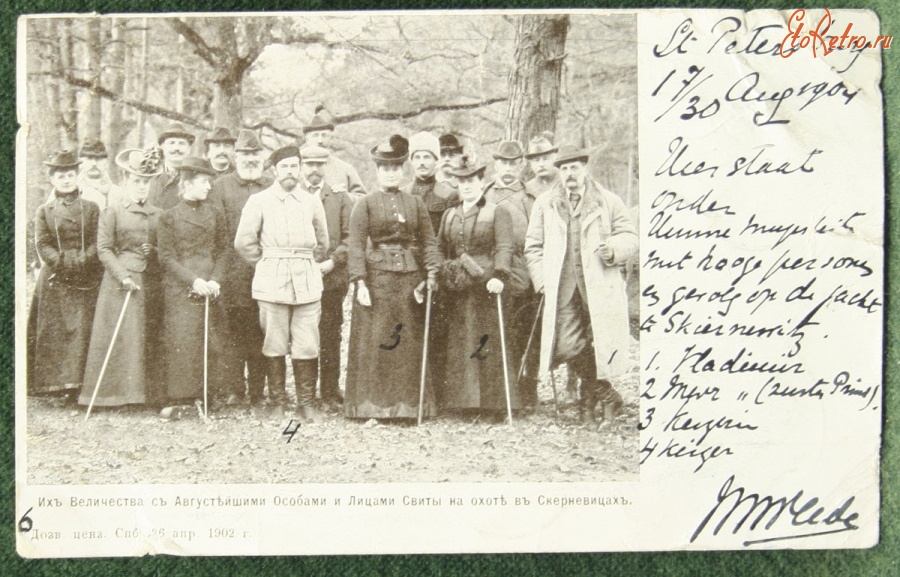 St Petersburg
17/30 Aug 1904
Hier staat
onder
Hunne Majesteiten
met hooge personen
en gevolg op de jacht
te Skiernewitz.
1. Vladimir
2 Mevr „ (zuster Prins).
3 Keizerin
4 Keizer
1
2
3
4
Ихъ Величества съ Августѣйшими Особами и Лицами Свиты на охотѣ въ Скерневицахъ.
6
Дозв. ценз. Спб. 26 апр. 1902 г.
EtoRetro.ru